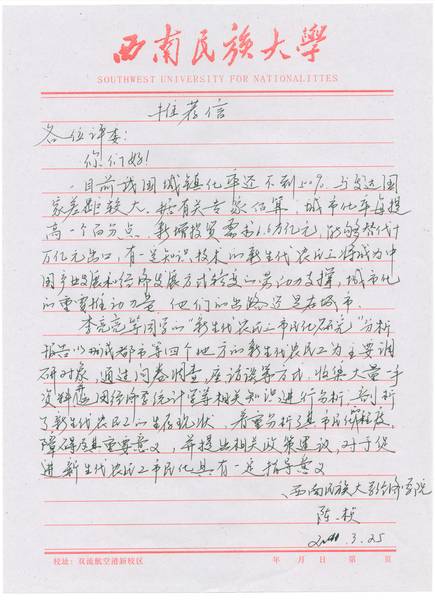 西南民族大学
SOUTHWEST UNIVERSITY FOR NATIONALITTES
推荐信
各位评委:
你们好!
目前我国城镇化率还不到50%,与发达国
家差距较大。据有关专家估算,城市化率每提
高一个百分点,新增投资需求6.6万亿元,能够替代十
万亿元出口,有一定知识、技术的新生代农民工将成为中
国产业发展和经济发展方式转变的劳动力支撑,城市化
的重要推动力量,他们的出路还是在城市。
李亮亮等同学的"新生代农民工市民化研究"分析
报告以成都市等四个地方的新生代农民工为主要调
研对象,通过问卷调查、座谈访谈等方式,收集大量一手
资料,运用经济学统计学等相关知识进行分析,剖析
了新生代农民工的生存现状,着重分析了其市民化程度、
障碍及其重要意义,并提出相关政策建议,对于促
进新生代农民工市民化具有一定指导意义。
西南民族大学经济学院
陈
3.25
校址:双流航空港新校区 年 月 日 第 页